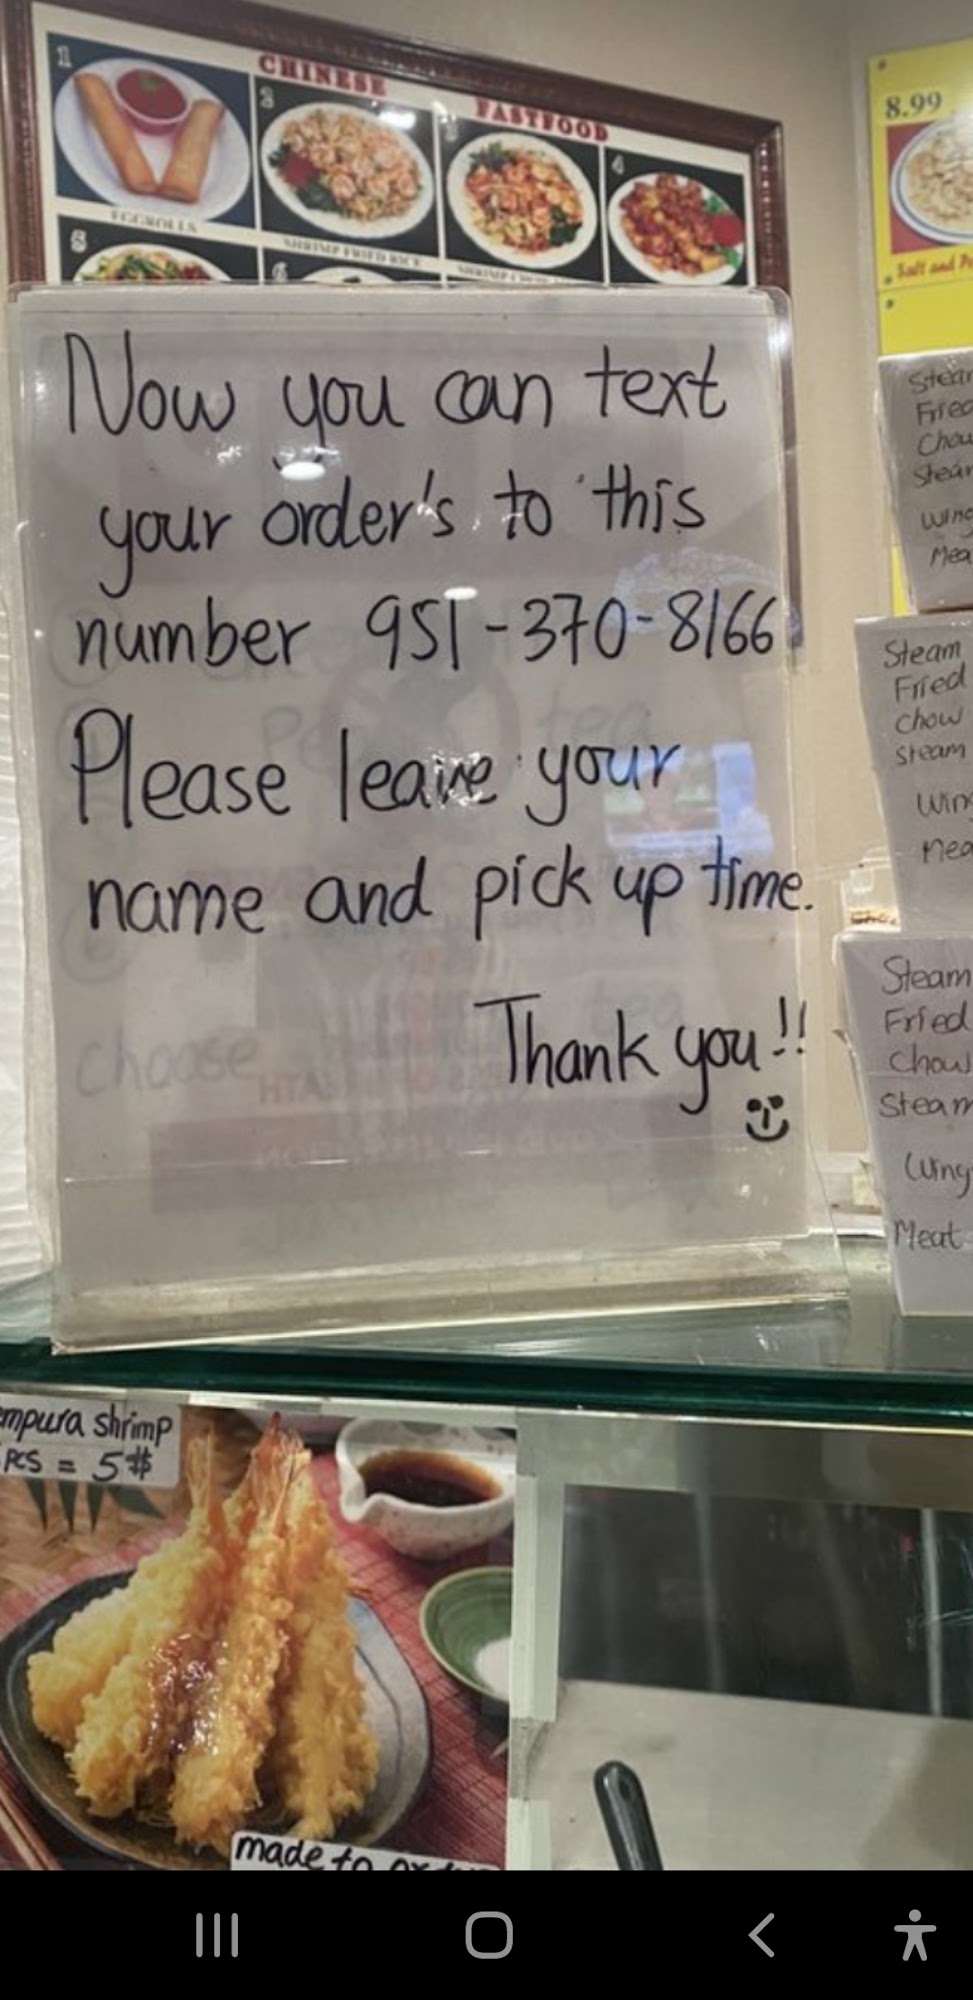 CHINESE
FASTFOOD
1
2
3
4
EGGROLLS
SHRIMP FRIED RICE
5
6
8.99
Salt and
Now you can text
your order's to this
number 951-370-8166
Please leave your
name and pick up time.
Thank you!!
choose
tea
tea
Steam
Fried
Chow
Steam
Wing
Mea
Steam
Fried
chow
steam
Wing
Mea
Steam
Fried
Chow
Steam
Wing
Meat
empura shrimp
PCS = 5$
made to order